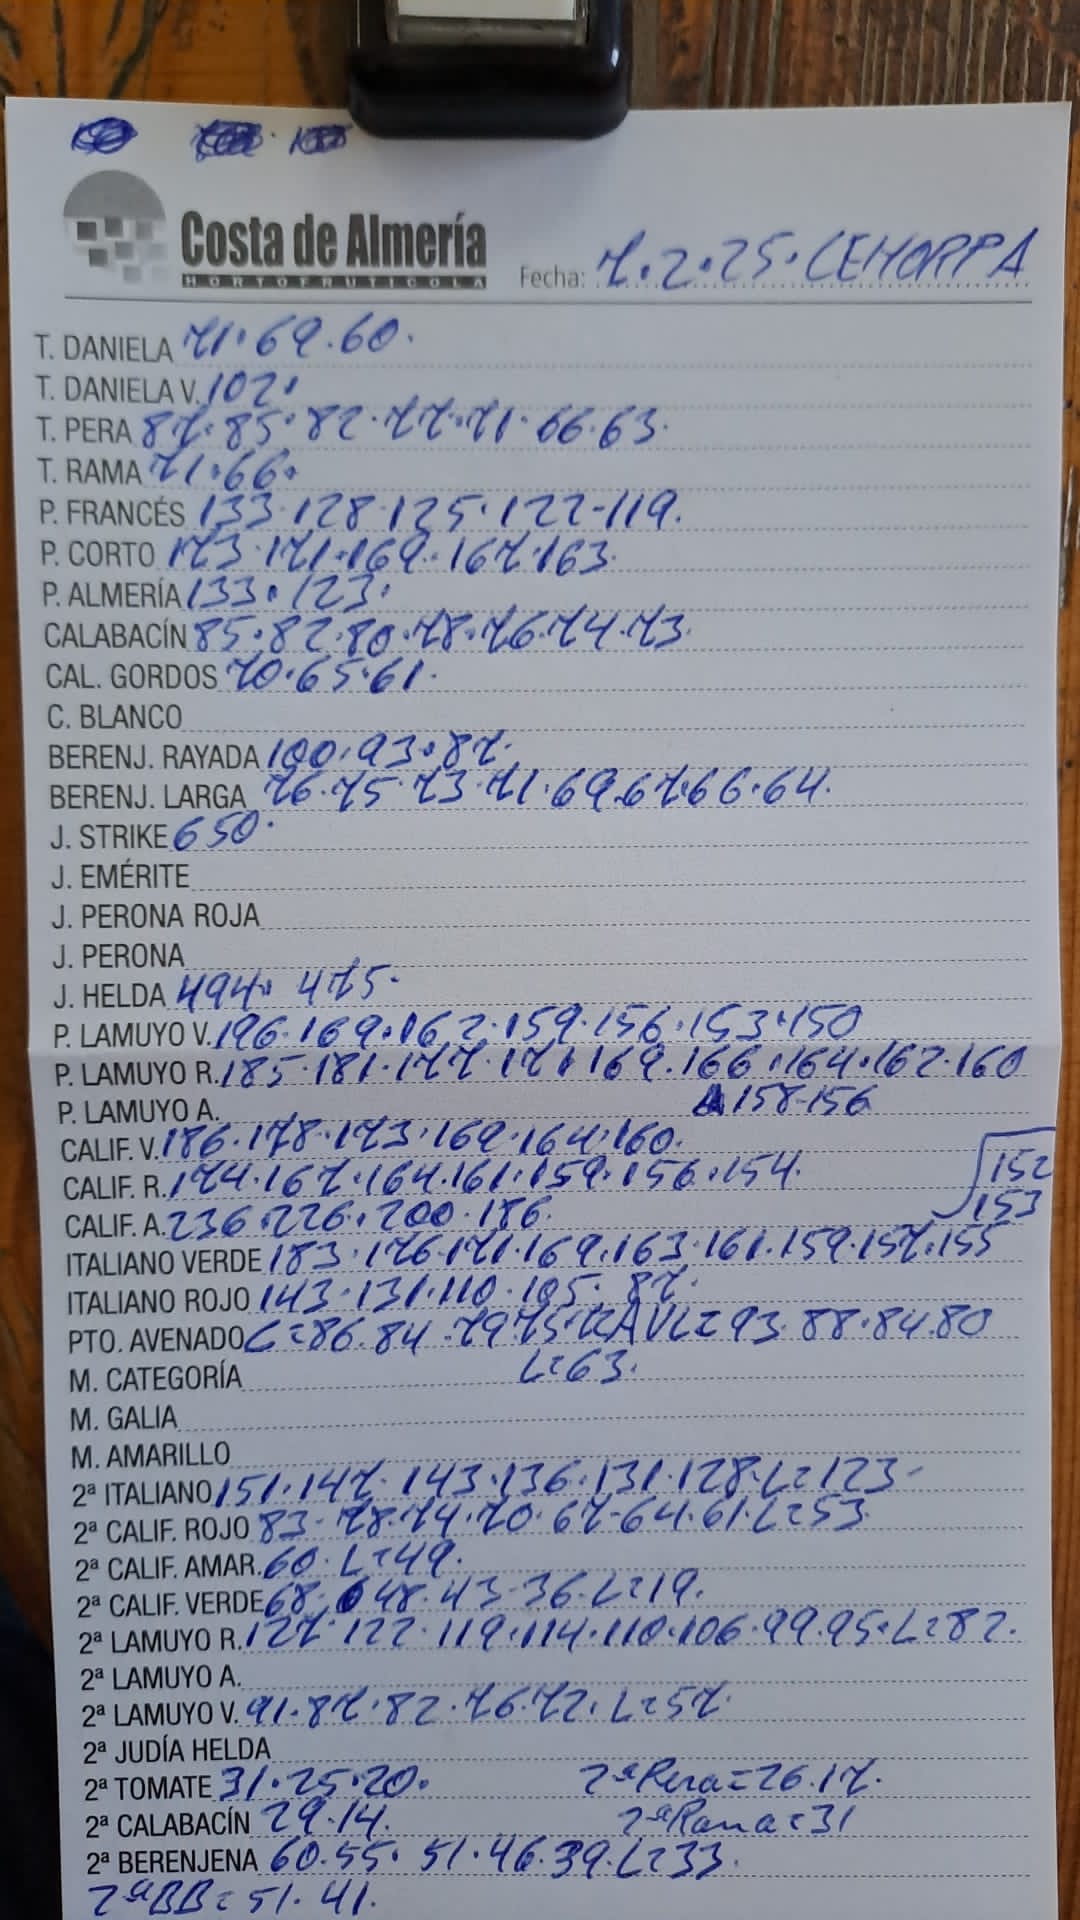 Costa de Almería
HORTOFRUTICOLA
Fecha: 7.2.25. CEHORPA
T. DANIELA 71.69.60.
T. DANIELA V. 102.
T. PERA 87.85.82.77.71.66.63.
T. RAMA 71.66.
P. FRANCÉS 133.128.125.122-119.
P. CORTO 173.171.169.167.163.
P. ALMERÍA 133.123.
CALABACÍN 85.82.80.78.76.74.73.
CAL. GORDOS 70.65.61.
C. BLANCO
BERENJ. RAYADA 100.93.87.
BERENJ. LARGA 76.75.73.71.69.67.66.64.
J. STRIKE 650.
J. EMÉRITE
J. PERONA ROJA
J. PERONA
J. HELDA 494. 475.
P. LAMUYO V. 196.169.162.159.156.153.150
P. LAMUYO R. 185.181.177.171.169.166.164.162.160
P. LAMUYO A. 158-156
CALIF. V. 186.178.173.169.164.160.
CALIF. R. 174.167.164.161.159.156.154. 152
153
CALIF. A. 236.226.200.186.
ITALIANO VERDE 183.176.171.169.163.161.159.157.155
ITALIANO ROJO 143.131.110.105. 87.
PTO. AVENADO C=86.84.79.75. 93.88.84.80
M. CATEGORÍA L=63.
M. GALIA
M. AMARILLO
2ª ITALIANO 151.147.143.136.131.128.L=123-
2ª CALIF. ROJO 83.78.74.70.67.64.61.L=53.
2ª CALIF. AMAR. 60.L=49.
2ª CALIF. VERDE 68. 48.43.36.L=19.
2ª LAMUYO R. 127.122.119.114.110.106.99.95.L=82.
2ª LAMUYO A.
2ª LAMUYO V. 91.87.82.76.72.L=57.
2ª JUDÍA HELDA
2ª TOMATE 31.25.20. 2ªPera=26.17.
2ª CALABACÍN 29.14. 2ªRama=31
2ª BERENJENA 60.55. 51.46.39.L=33.
2ªBB=51.41.